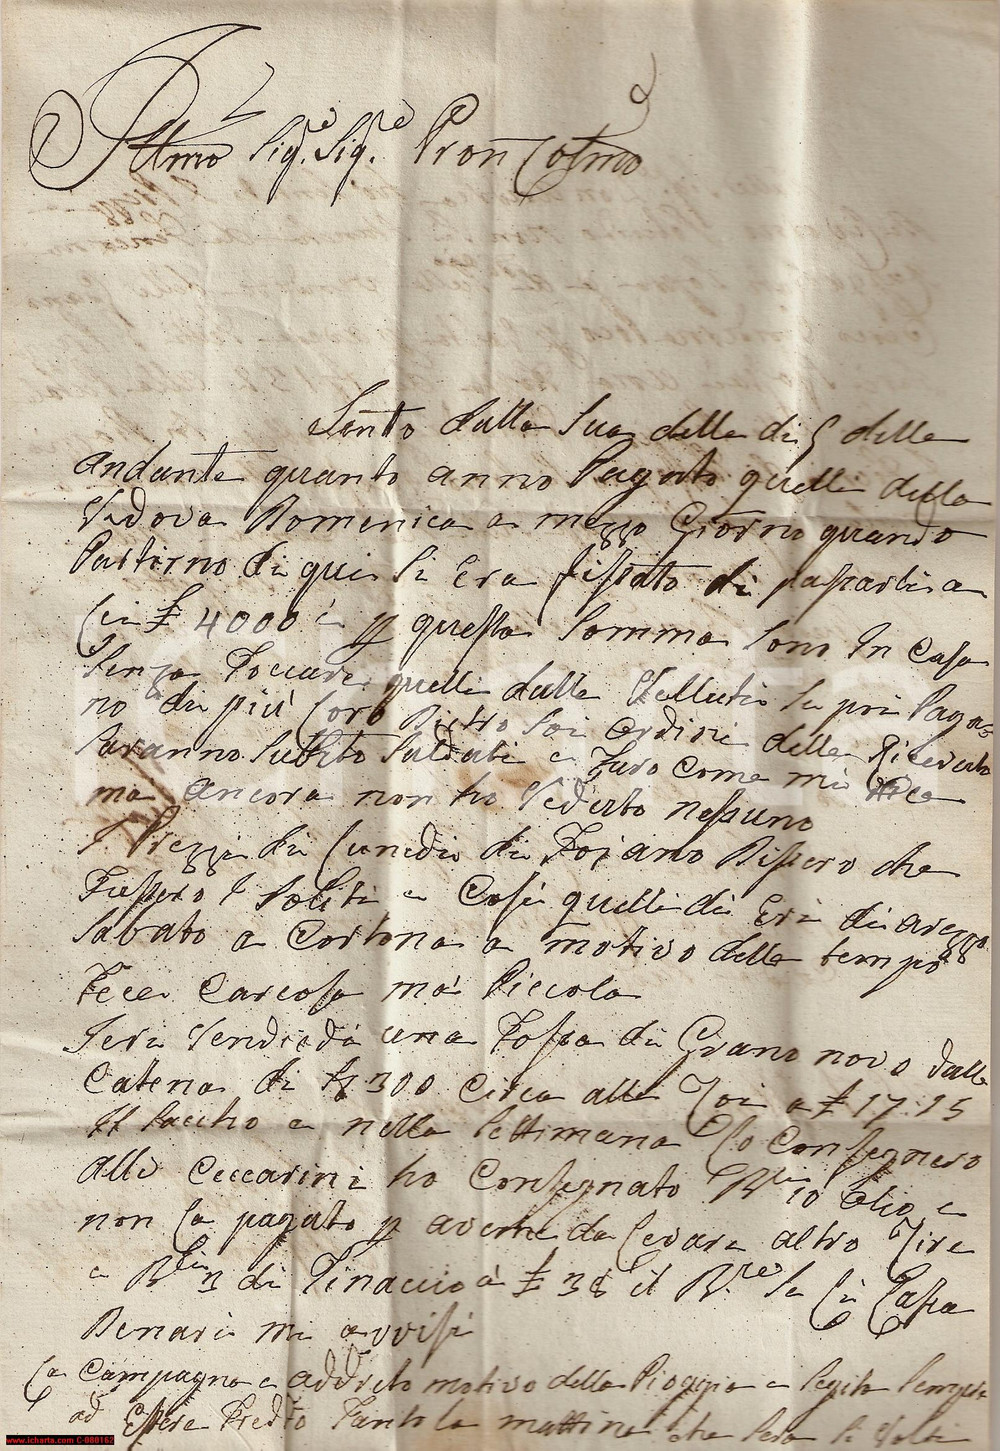 Illmo Sig.re Sig.re Pron Colmo
Sento dalla Sua della di 5 della
andante quanto anno Pagato quelli della
Vedova Domenica a mezzo Giorno quando
Partirno di qui si era fissato di passarli a
Lei £ 4000 e p questa Somma sono In Casa
Senza Toccare quelli dalla Vellutis se poi Paga=
no di più loro Dietro Soi Ordini della Riceverta
Saranno Subbito Saldati e Faro come mi dice
ma Ancora non ho Veduto nessuno
I Prezzi di Lunedi di Foiano Dissero che
Fussero I Soliti e Così quelli di Eri di arezzo
Sabato a Cortona a motivo della tempo
Fece Carcosa ma Piccola
Ieri Vendiedi una Fossa di Grano novo dalle
Catena di St 300 Circa alli Toi a £ 17.15
Il Saccho e nella Settimana lo Consegnero
alli Ceccarini ho Consegnato Bli 10 Olio e
non la pagato p averne da Levare altro Tire
e Bli 3 di Pinaccio a £ 38 il Ble Se Li Passa
Denari mi avvisi
La Campagna e addreto motivo della Pioggia e Seguita Sempre
ad Essere Freddo Tanto la mattina che Sera Si Volti
www.icharta.com C-080162